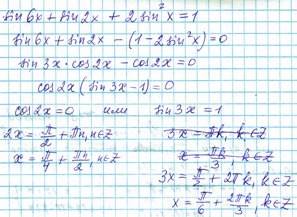 sin6x + sin2x + 2sin²x = 1
sin6x + sin2x - (1-2sin²x) = 0
sin3x · cos2x - cos2x = 0
cos2x (sin3x - 1) = 0
cos2x = 0 или sin3x = 1
2x = π/2 + πn, n∈Z 3x = πk, k∈Z
x = π/4 + πn/2, n∈Z x = πk/3, k∈Z
3x = π/2 + 2πk, k∈Z
x = π/6 + 2πk/3, k∈Z